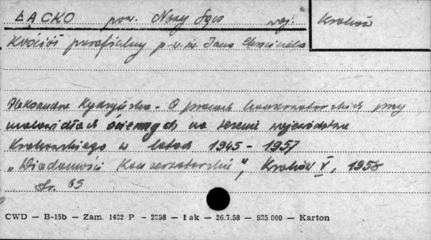 ŁĄCKO pow. Nowy Sącz woj. Kraków
Kościół parafialny p.w. św. Jana Chrzciciela
Aleksandra - O pracach konserwatorskich przy
malowidłach ściennych na terenie województwa
Krakowskiego w latach 1945 - 1957
"Wiadomości Konserwatorskie", Kraków V, 1958
str. 65
CWD — B-15b — Zam. 1422 P - 2298 — 1 ak — 26.7.58 — 935.000 — Karton